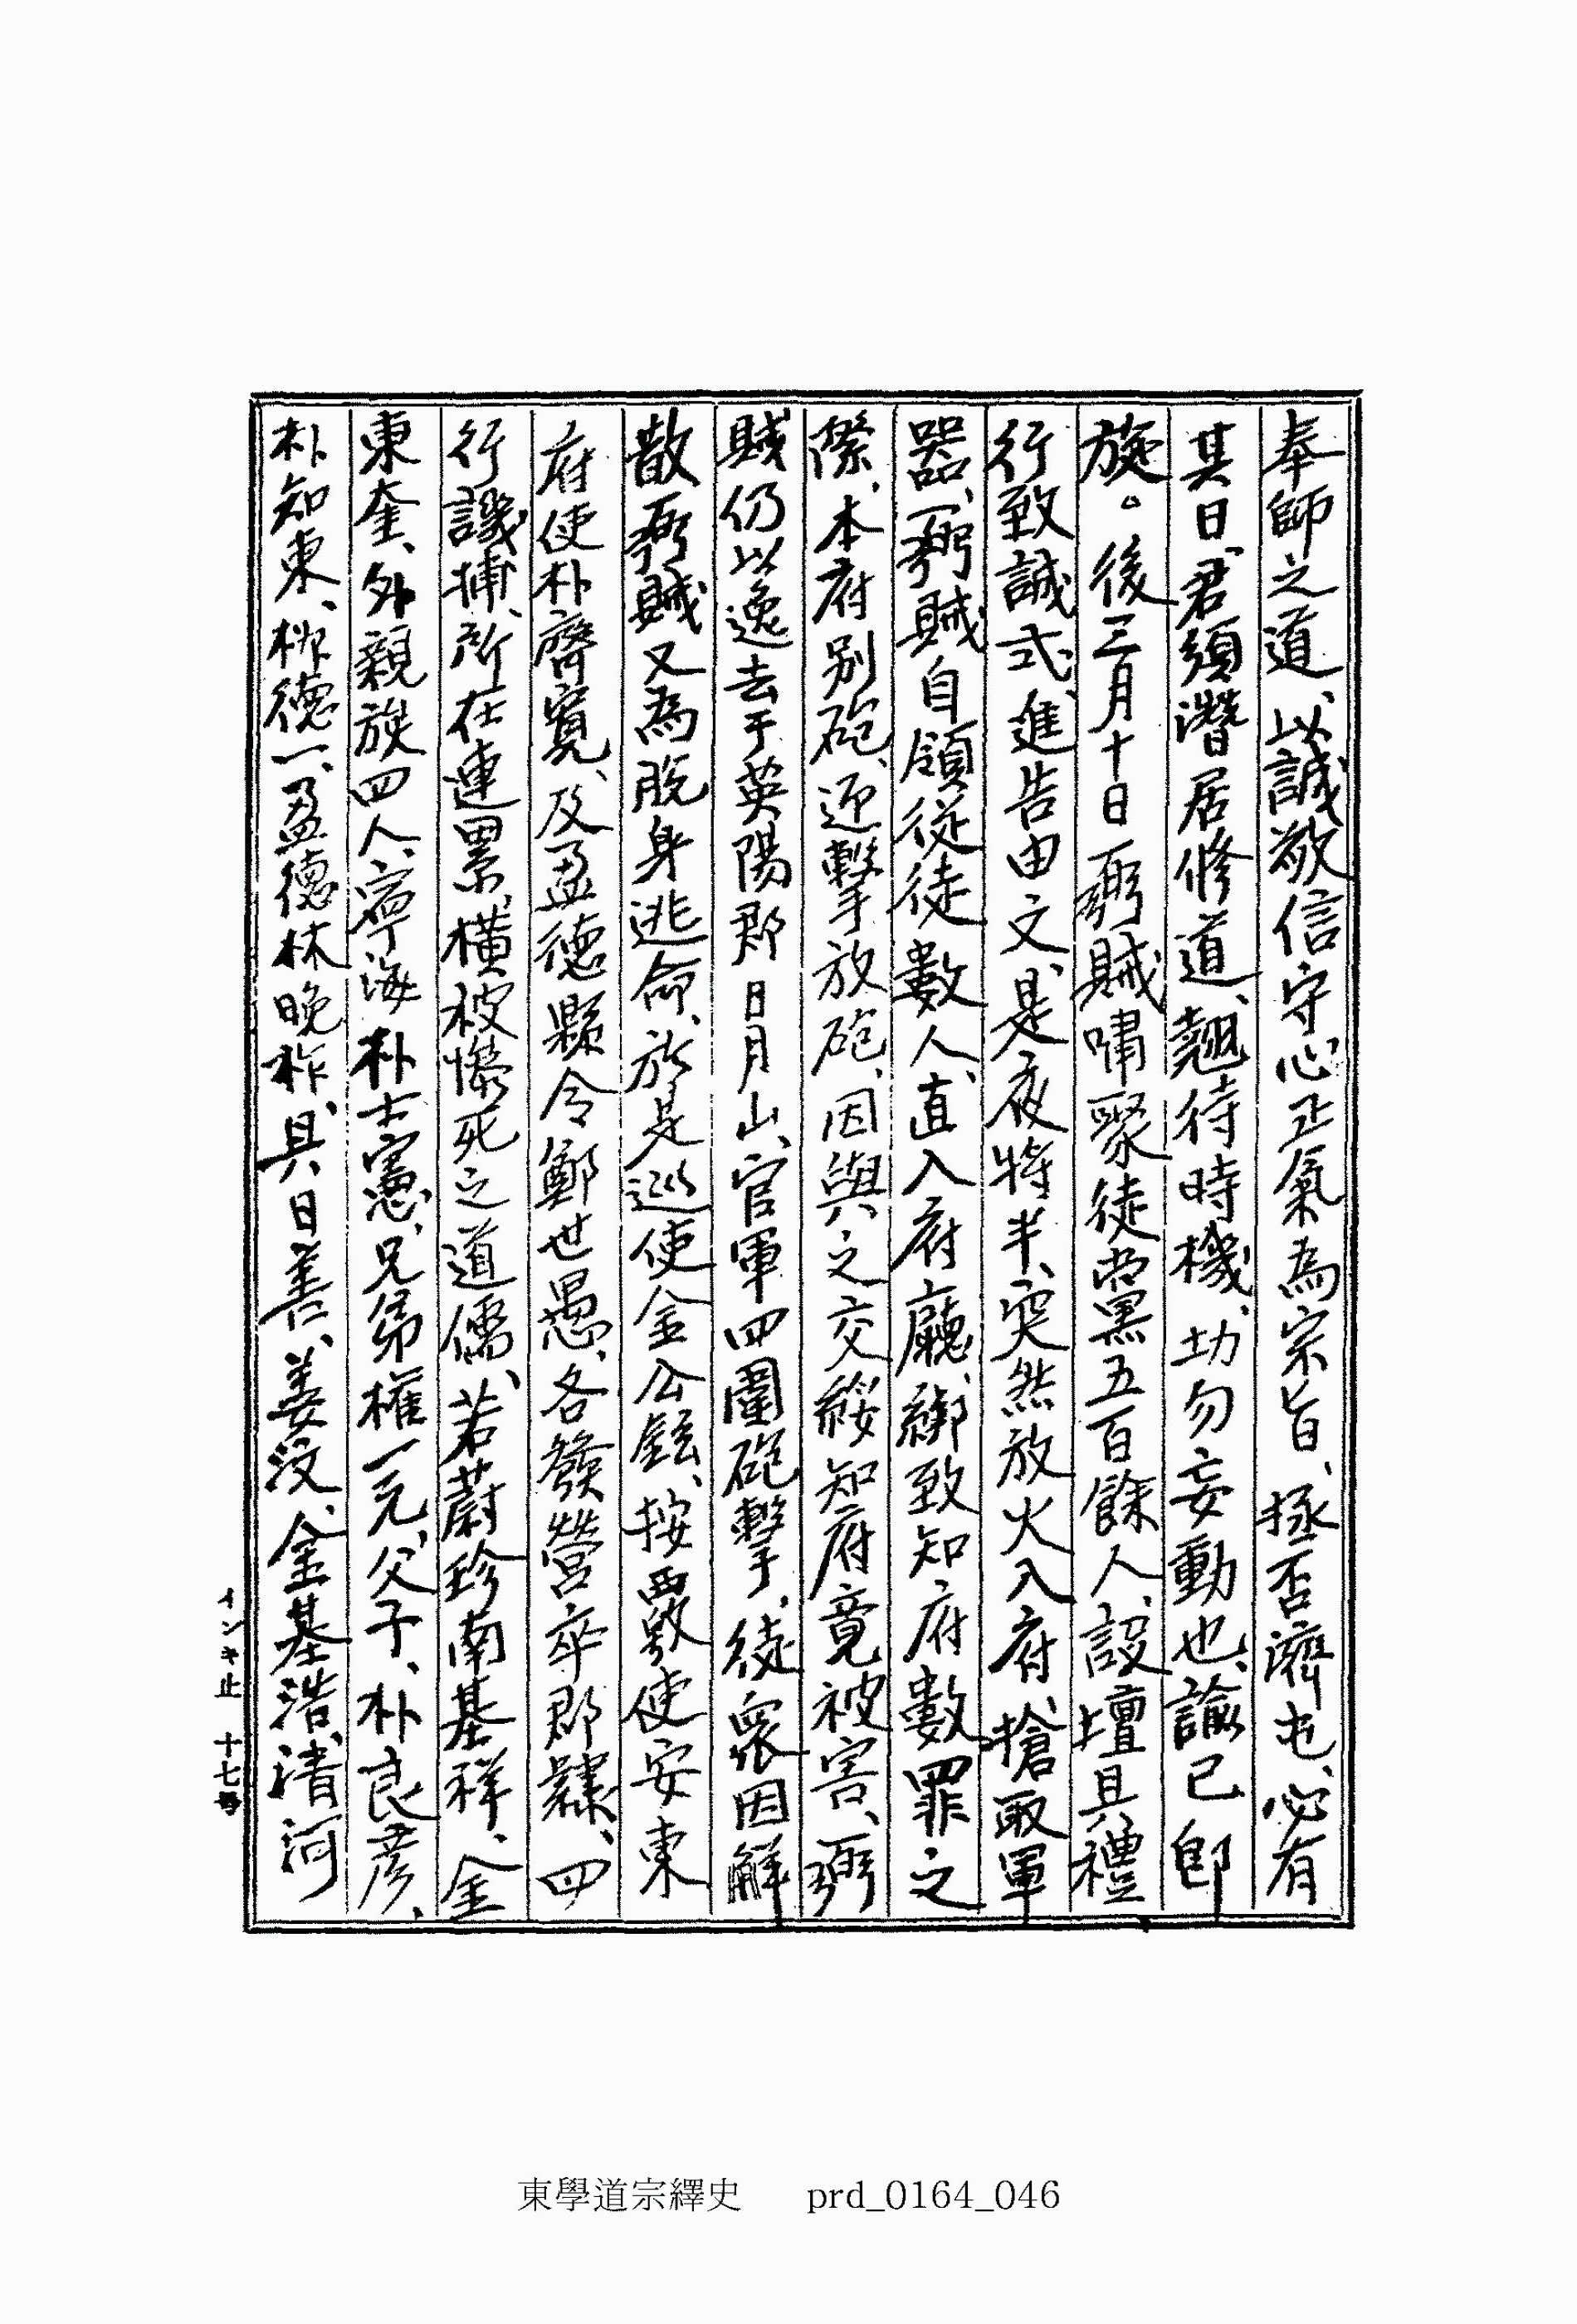 奉師之道、以誠敬信守心正氣為宗旨、拯否濟屯、必有
其日、君須潛居修道、翹待時機、切勿妄動也、諭已卽
旋。後三月十日弼賊嘯聚徒黨五百餘人、設壇具禮
行致誠式、進告由文、是夜將半、突然放火入府、搶取軍
器、弼賊自領從徒數人、直入府廳、綁致知府數罪之
際、本府別砲、迎擊放砲、因與之交綏知府竟被害、弼
賊仍以逸去于英陽郡日月山、官軍四圍砲擊、徒衆因解
散弼賊又為脫身逃命、於是巡使金公鉉、按覈使安東
府使朴齊寬、及盈德縣令鄭世愚、各發營卒郡隸、四
行譏捕、所在連累、橫被慘死之道儒、若蔚珍南基祥、金
東奎、外親族四人、寧海朴士憲、兄弟權一元、父子、朴良彦、
朴知東、柳德一、盈德林晚祚、具日善、姜汶、金基浩、淸河
インキ止 十七号
東學道宗繹史 prd_0164_046